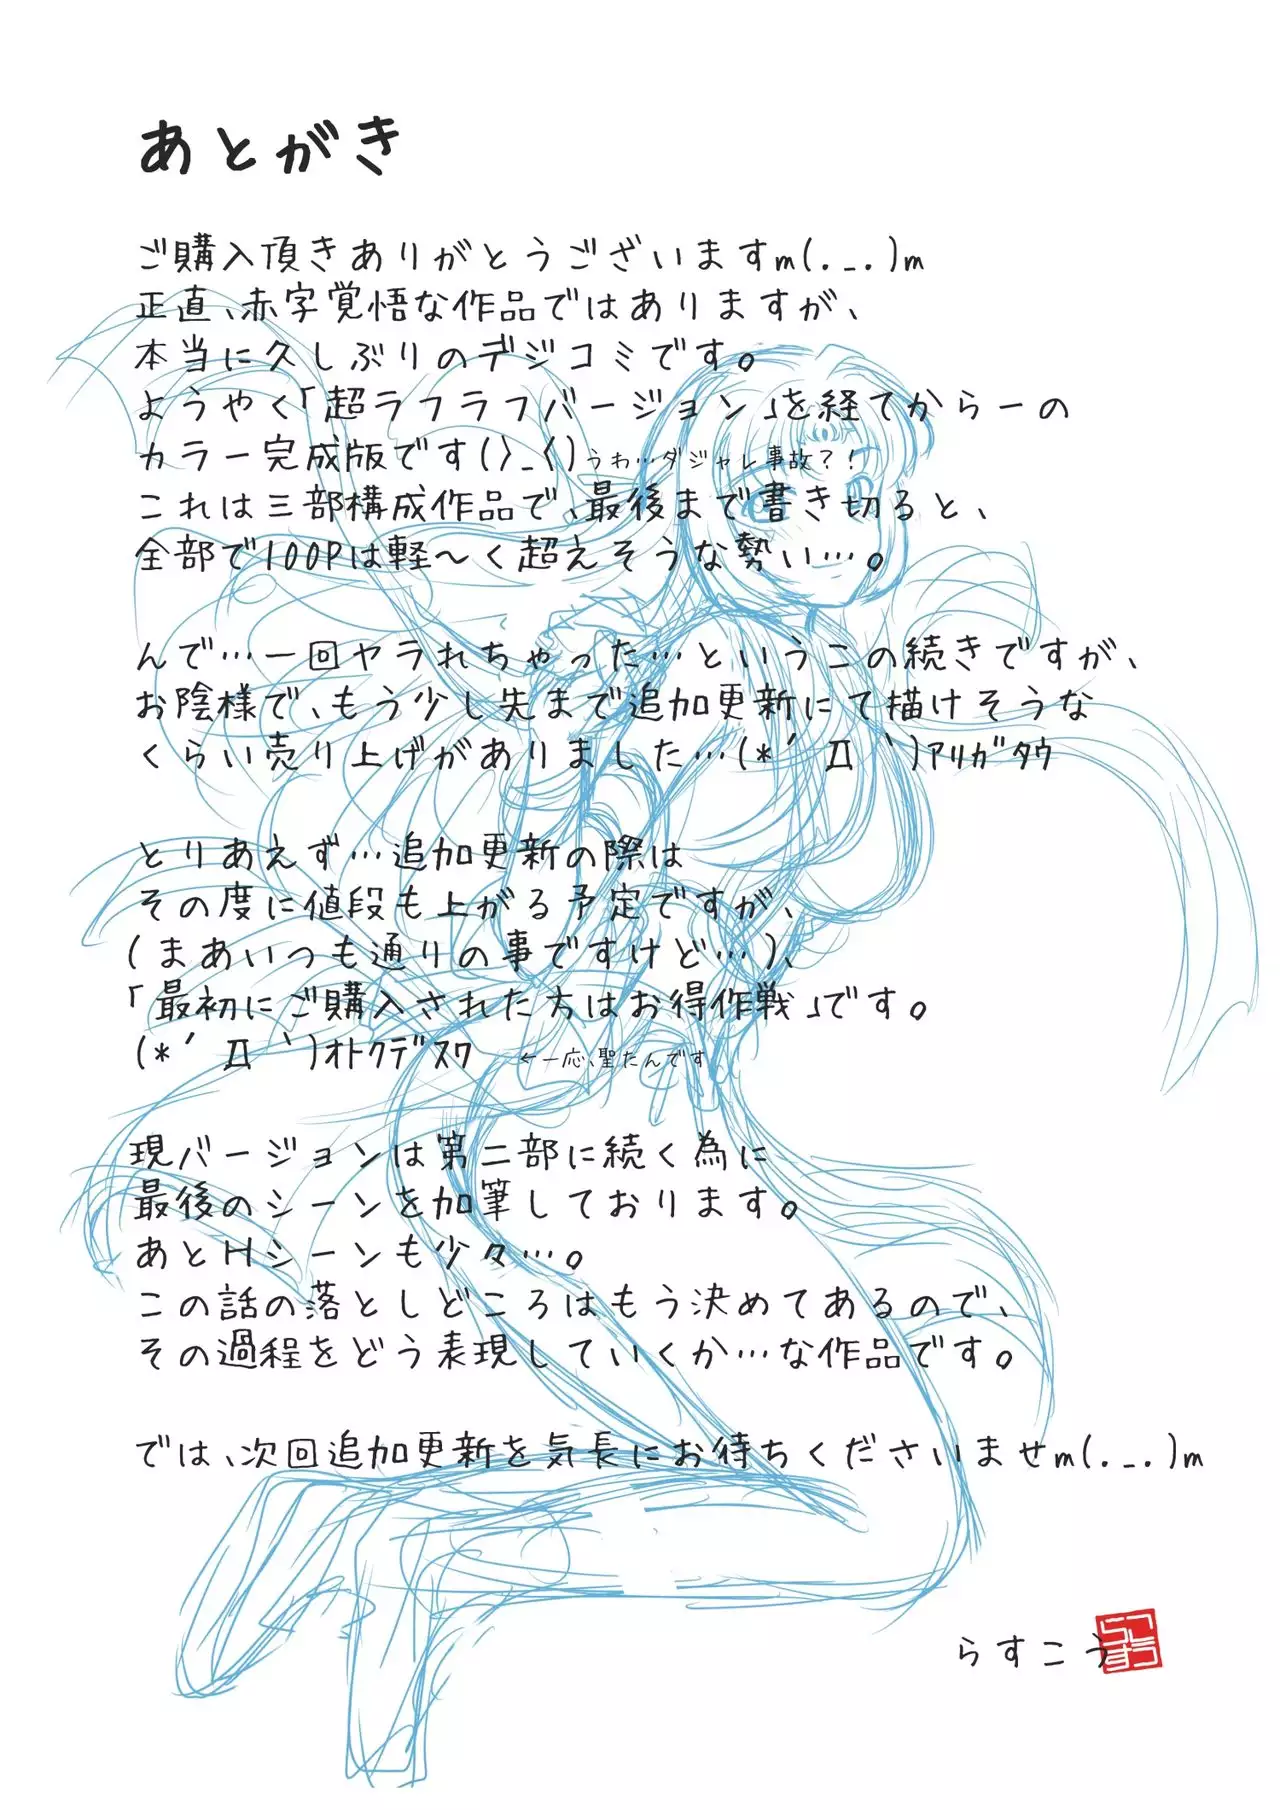 あとがき
ご購入頂きありがとうございますm(._.)m
正直、赤字覚悟な作品ではありますが、
本当に久しぶりのデジコミです。
ようやく「超ラフラフバージョン」を経てからーの
カラー完成版です(〉_〈)うわ…ダジャレ事故？！
これは三部構成作品で、最後まで書き切ると、
全部で100Pは軽～く超えそうな勢い…。
んで…一回ヤラれちゃった…というこの続きですが、
お陰様で、もう少し先まで追加更新にて描けそうな
くらい売り上げがありました…(*´Д｀)ｱﾘｶﾞﾀｳ
とりあえず…追加更新の際は
その度に値段も上がる予定ですが、
(まあいつも通りの事ですけど…)、
「最初にご購入された方はお得作戦」です。
(*´Д｀)ｵﾄｸﾃﾞｽﾜ ←一応、聖たんです
現バージョンは第二部に続く為に
最後のシーンを加筆しております。
あとHシーンも少々…。
この話の落としどころはもう決めてあるので、
その過程をどう表現していくか…な作品です。
では、次回追加更新を気長にお待ちくださいませm(._.)m
らすこう
らすこう